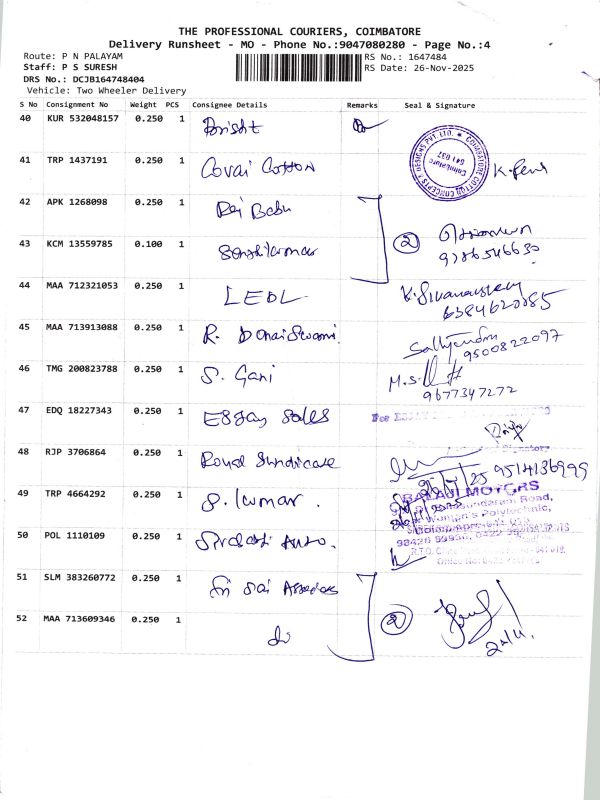 THE PROFESSIONAL COURIERS, COIMBATORE
Delivery Runsheet - MO - Phone No.:9047080280 - Page No.:4
Route: P N PALAYAM
RS No.: 1647484
Staff: P S SURESH
RS Date: 26-Nov-2025
DRS No.: DCJB164748404
Vehicle: Two Wheeler Delivery
S No Consignment No Weight PCS Consignee Details Remarks Seal & Signature
40 KUR 532048157 0.250 1
41 TRP 1437191 0.250 1 Covai Cotton
COIMBATORE COTTON CONCEPTS & DESIGNS PVT. LTD.
Coimbatore
641 037
42 APK 1268098 0.250 1 Raj Babu
43 KCM 13559785 0.100 1 Senthilkumar
2
9786546630
44 MAA 712321053 0.250 1 LEDL
6384620085
45 MAA 713913088 0.250 1 R. Doraiswami
9500822097
46 TMG 200823788 0.250 1 S. Gani
9677347272
47 EDQ 18227343 0.250 1 Essay Sales
48 RJP 3706864 0.250 1 Royal Syndicate
9514136995
49 TRP 4664292 0.250 1 S. Kumar.
BALAJI MOTORS
Women's Polytechnic,
50 POL 1110109 0.250 1
51 SLM 383260772 0.250 1 Sri Sai Associates
52 MAA 713609346 0.250 1 do
2